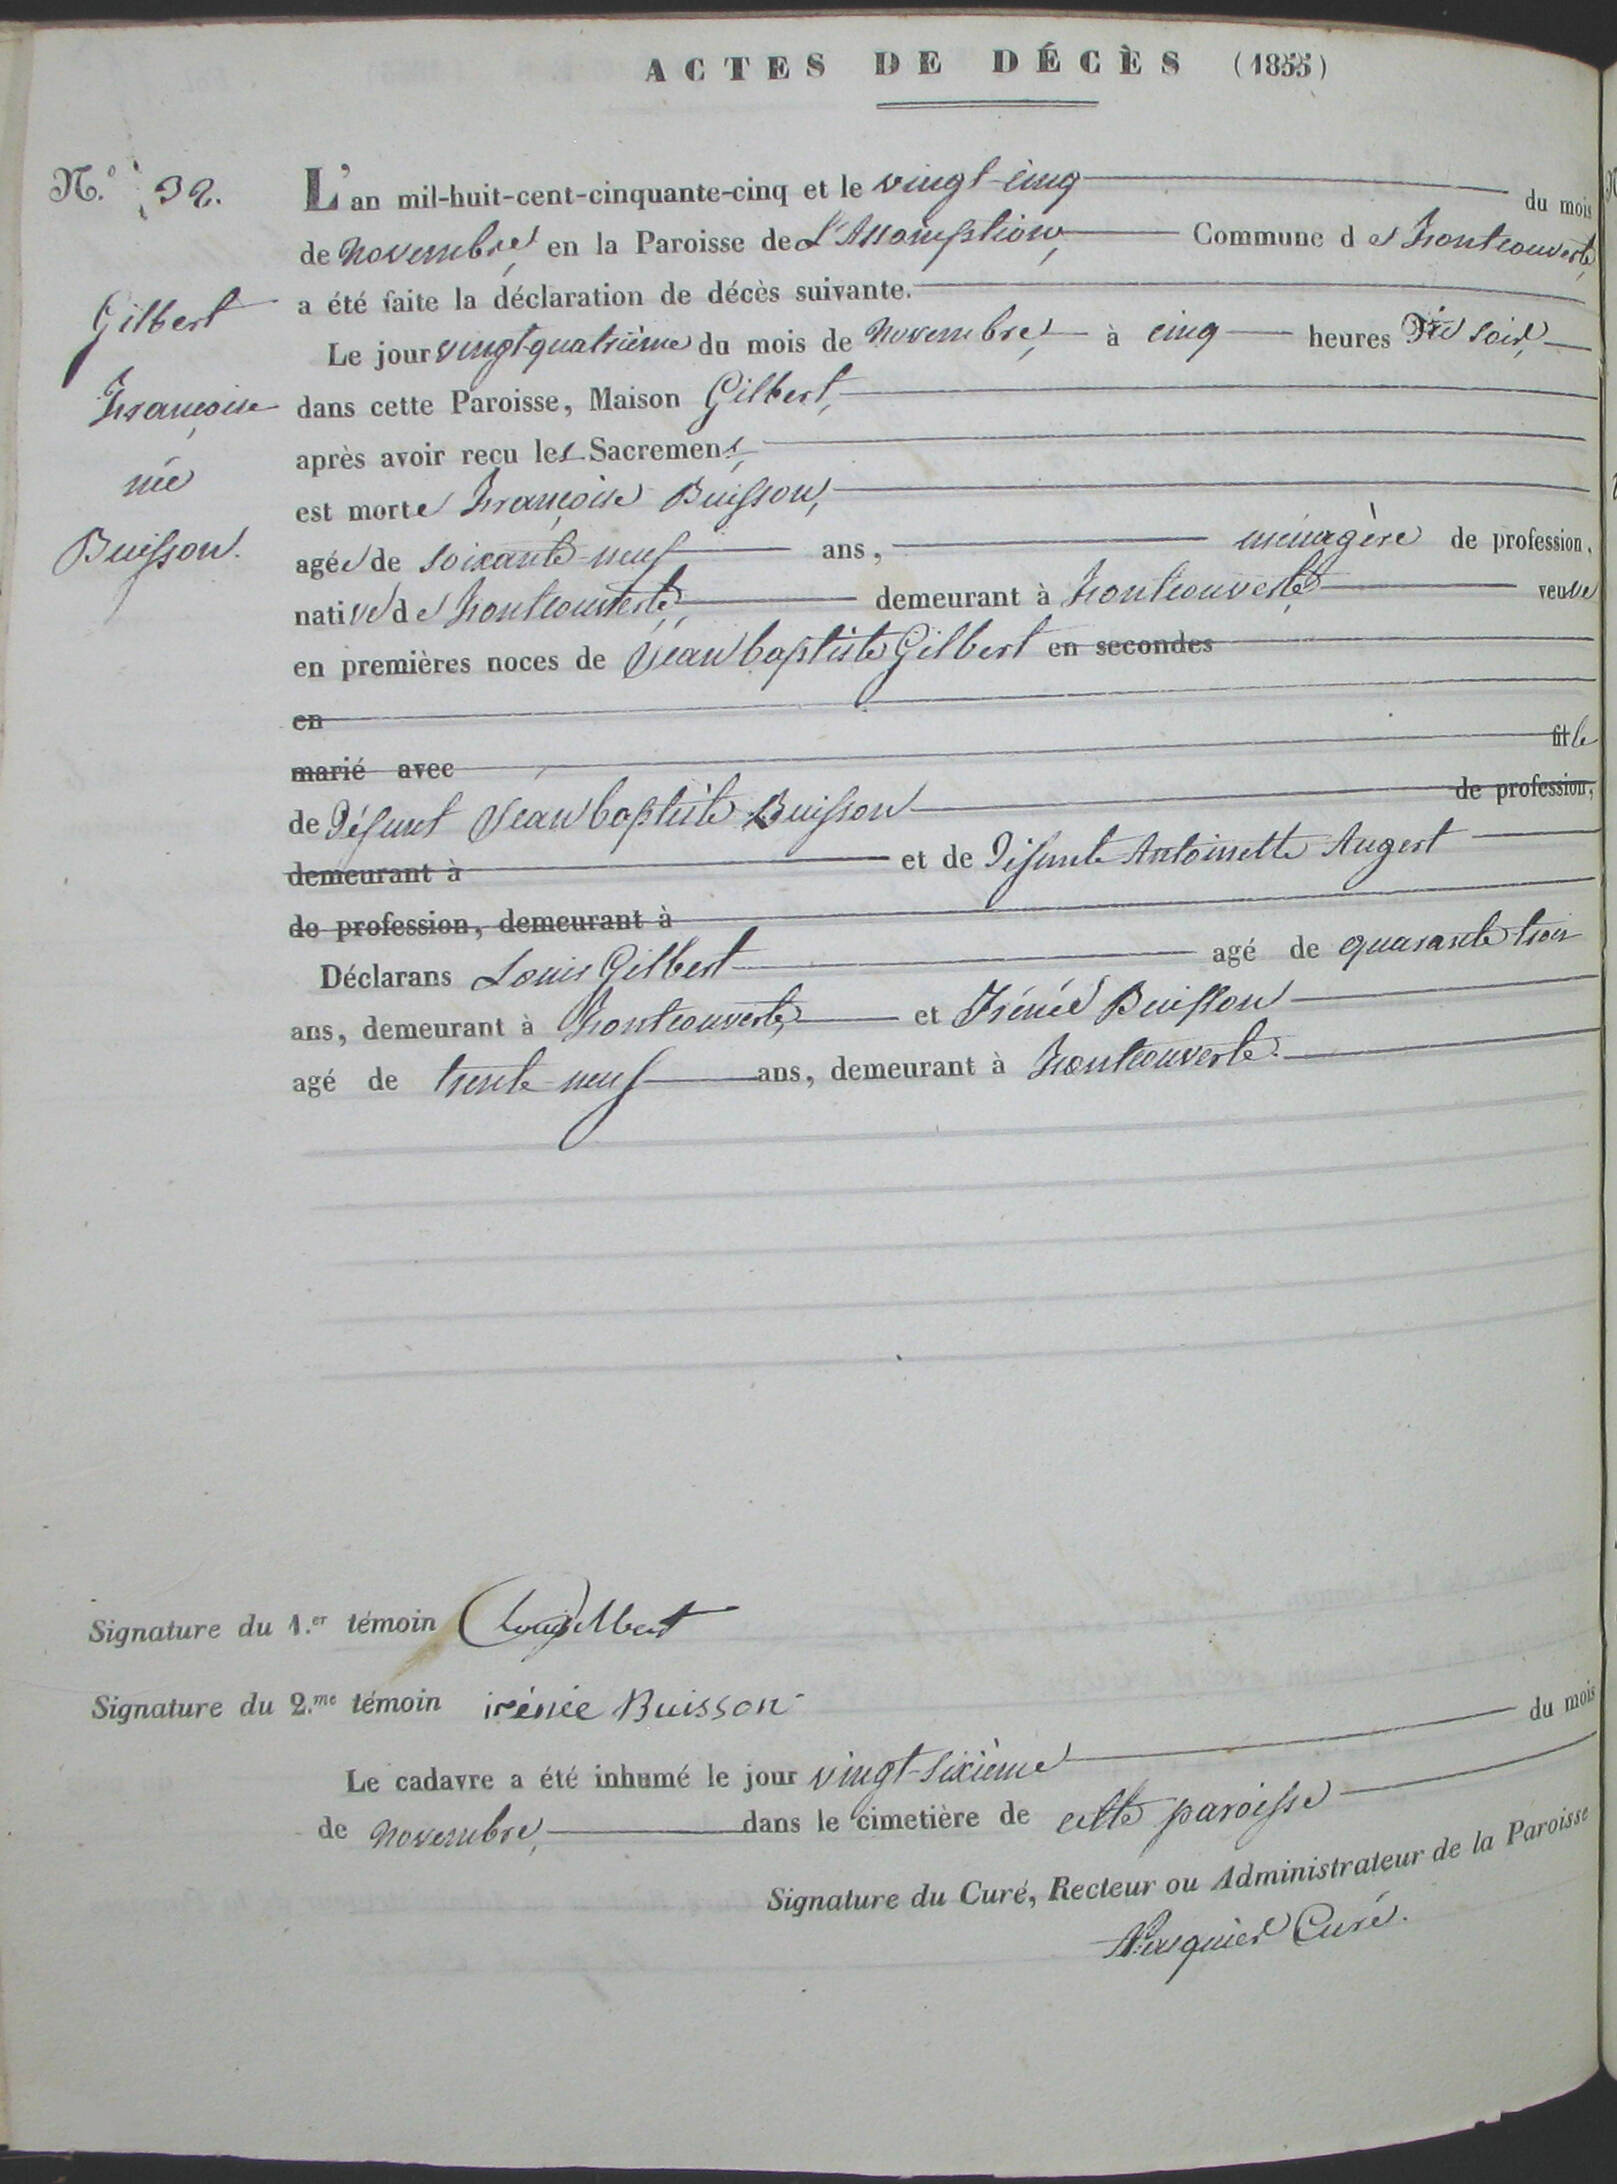 ACTES DE DÉCÈS (1855)
N.º 32.
L'an mil-huit-cent-cinquante-cinq et le vingt-cinq du mois
de novembre, en la Paroisse de L'Assomption, Commune de Montcouverte,
a été faite la déclaration de décès suivante.
Gilbert
Françoise
née
Buisson.
Le jour vingt-quatrième du mois de novembre, à cinq heures du soir,
dans cette Paroisse, Maison Gilbert,
après avoir reçu les Sacremens,
est morte Françoise Buisson,
agée de soixante-neuf ans, ménagère de profession,
native de Montcouverte, demeurant à Montcouverte veuve
en premières noces de Jean baptiste Gilbert en secondes
en
marié avec fille
de Défunt Jean baptiste Buisson de profession,
demeurant à et de Défunte Antoinette Augert
de profession, demeurant à
Déclarans Louis Gilbert agé de quarante trois
ans, demeurant à Montcouverte, et Irénée Buisson
agé de trente-neuf ans, demeurant à Montcouverte.
Signature du 1.er témoin Louis Gilbert
Signature du 2.me témoin irénée Buisson
Le cadavre a été inhumé le jour vingt-sixième du mois
de novembre, dans le cimetière de cette paroisse
Signature du Curé, Recteur ou Administrateur de la Paroisse
Curé.